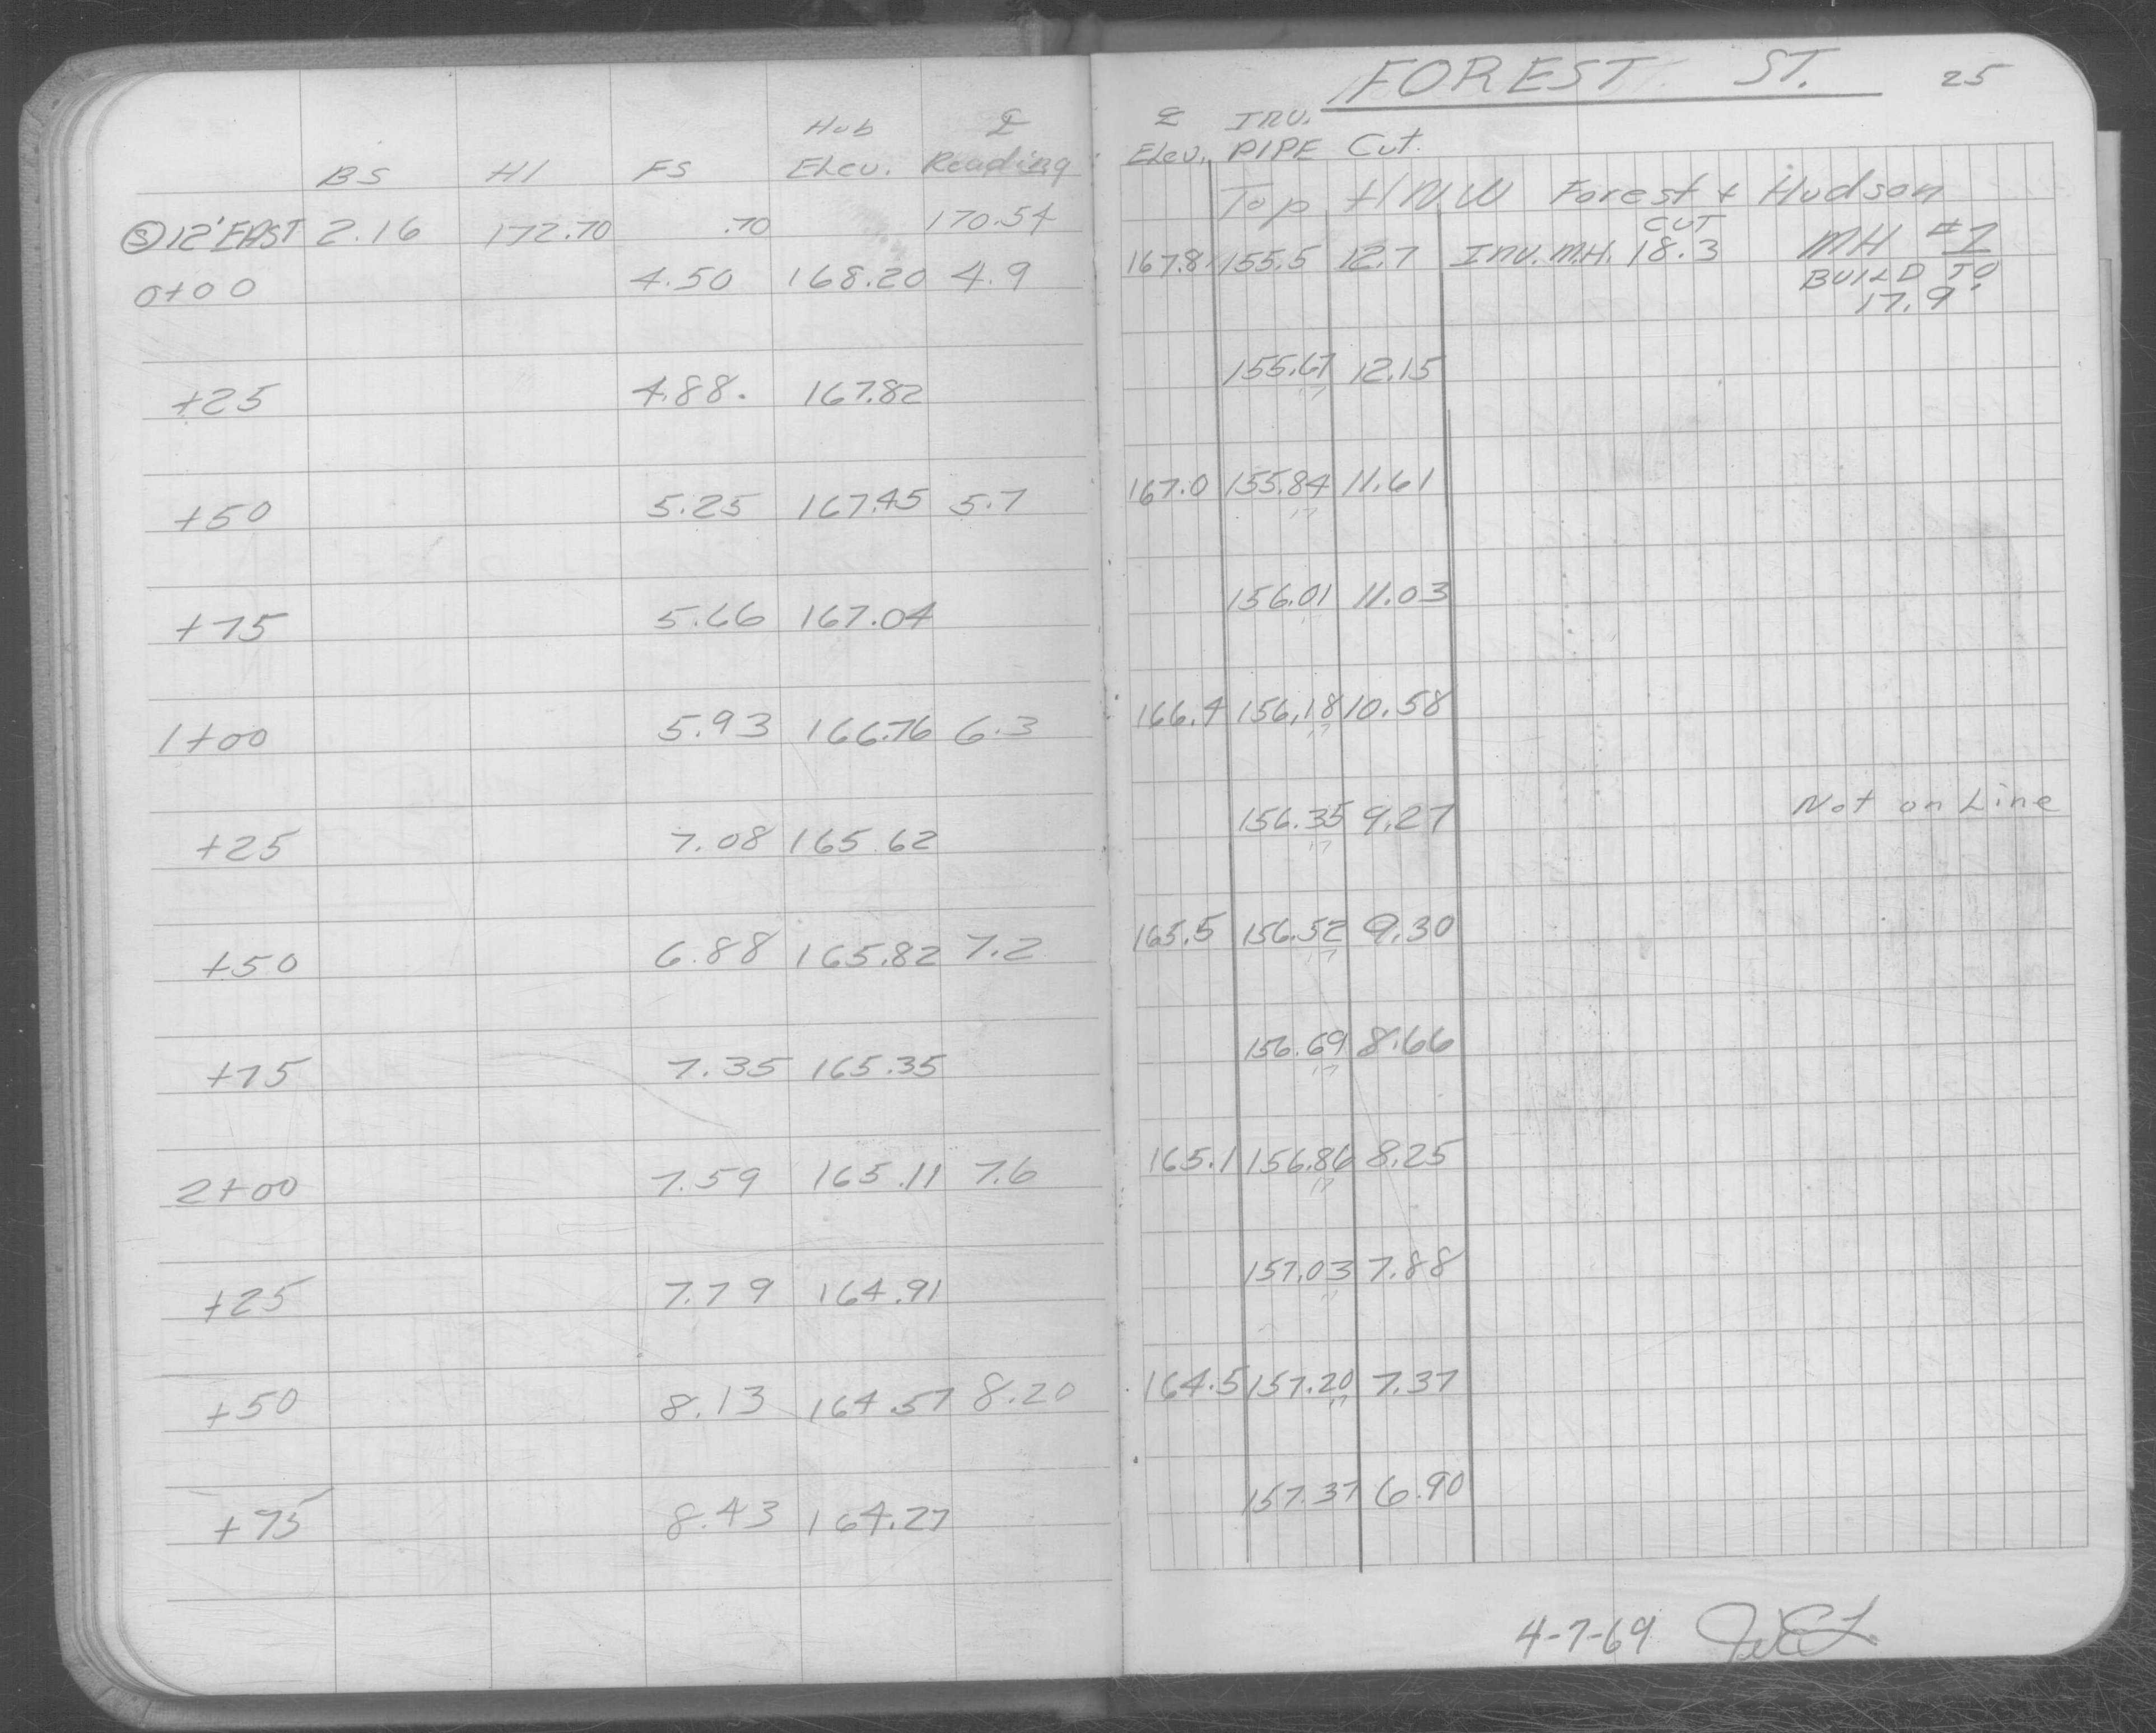 Hub ℄
BS HI FS Elev. Reading
Ⓢ12'EAST 2.16 172.70 .70 170.54
0+00 4.50 168.20 4.9
+25 4.88. 167.82
+50 5.25 167.45 5.7
+75 5.66 167.04
1+00 5.93 166.76 6.3
+25 7.08 165.62
+50 6.88 165.82 7.2
+75 7.35 165.35
2+00 7.59 165.11 7.6
+25 7.79 164.91
+50 8.13 164.57 8.20
+75 8.43 164.27
FOREST ST. 25
℄ INV.
Elev. PIPE Cut.
Top HNW Forest + Hudson
CUT
167.8 155.5 12.7 INV. M.H. 18.3 MH #1
BUILD TO
17.9
155.67 12.15
17
167.0 155.84 11.61
17
156.01 11.03
17
166.4 156.18 10.58
17
156.35 9.27 Not on Line
17
165.5 156.52 9.30
17
156.69 8.66
17
165.1 156.86 8.25
17
157.03 7.88
17
164.5 157.20 7.37
17
157.37 6.90
4-7-69